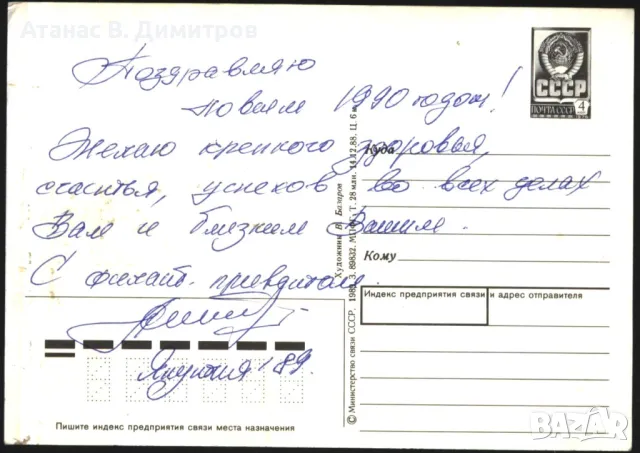 Атанас В. Димитров
Поздравляю
новым 1990 годом!
Желаю крепкого здоровья,
счастья, успехов во всех делах
Вам и близким Вашим.
С филат. приветом
Якутия 189.
СССР
ПОЧТА СССР 4
Куда
Кому
Индекс предприятия связи и адрес отправителя
Пишите индекс предприятия связи места назначения
© Министерство связи СССР. 1989. З. 89832. МПФГ. Т. 28 млн. 14.12.88. Ц. 6 к.
Художник В. Базаров
BAZAR